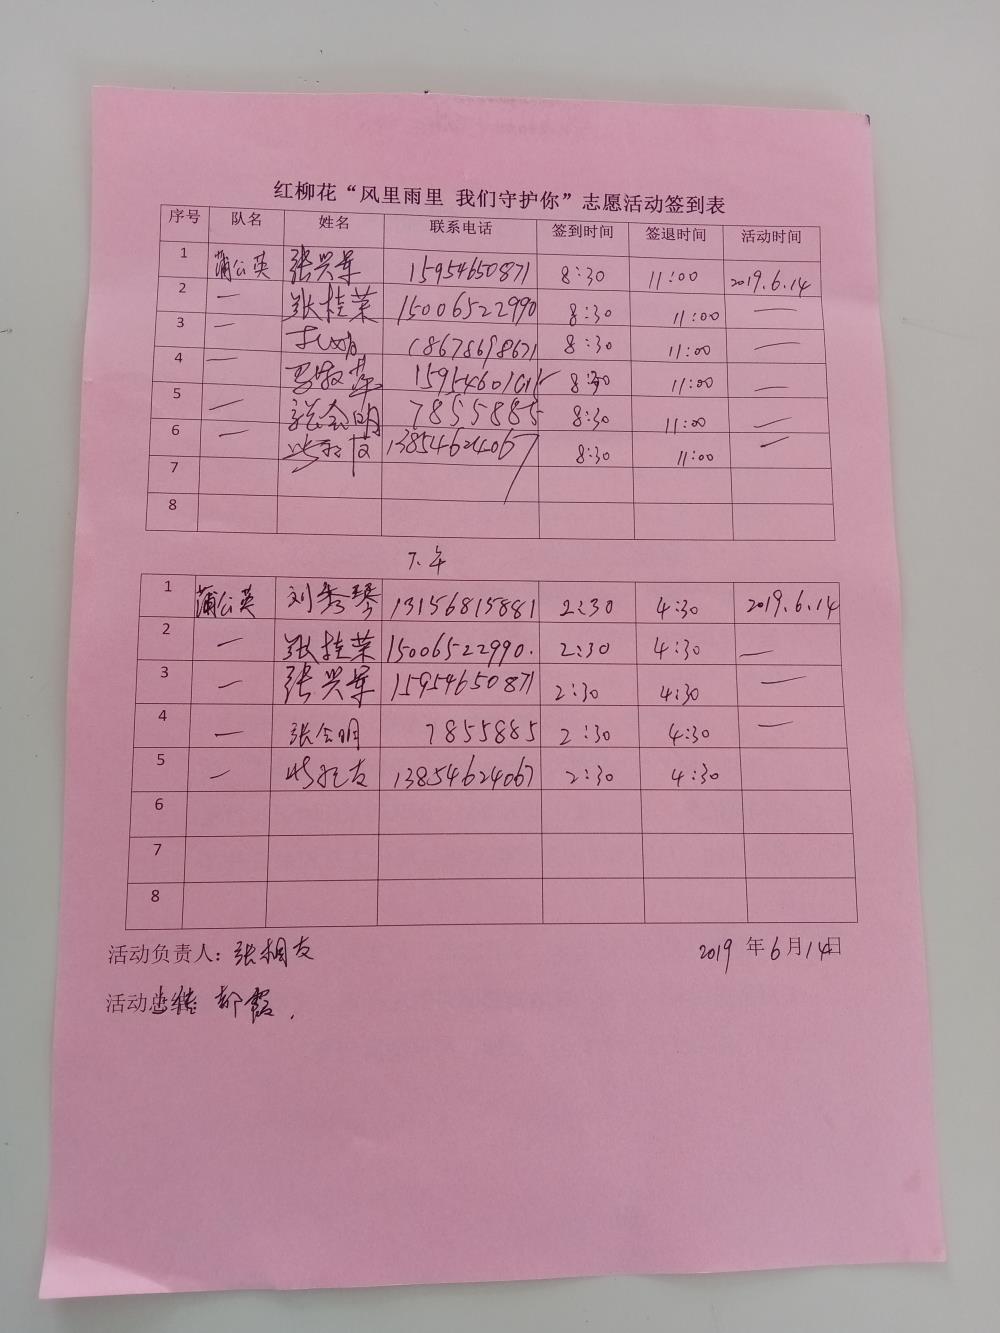 红柳花“风里雨里 我们守护你”志愿活动签到表
序号 队名 姓名 联系电话 签到时间 签退时间 活动时间
1 蒲公英 张兴军 15954650871 8:30 11:00 2019.6.14
2 一 张桂荣 15006522990 8:30 11:00 一
3 一 18678698671 8:30 11:00 一
4 一 8:30 11:00 一
5 一 张会明 7855885 8:30 11:00 一
6 一 13854624067 8:30 11:00 一
7
8
下午
1 蒲公英 刘秀琴 13156815881 2:30 4:30 2019.6.14
2 一 张桂荣 15006522990. 2:30 4:30 一
3 一 张兴军 15954650871 2:30 4:30 一
4 一 张会明 7855885 2:30 4:30 一
5 一 13854624067 2:30 4:30
6
7
8
活动负责人：张相友 2019 年 6 月 14 日
活动总 郝霞.